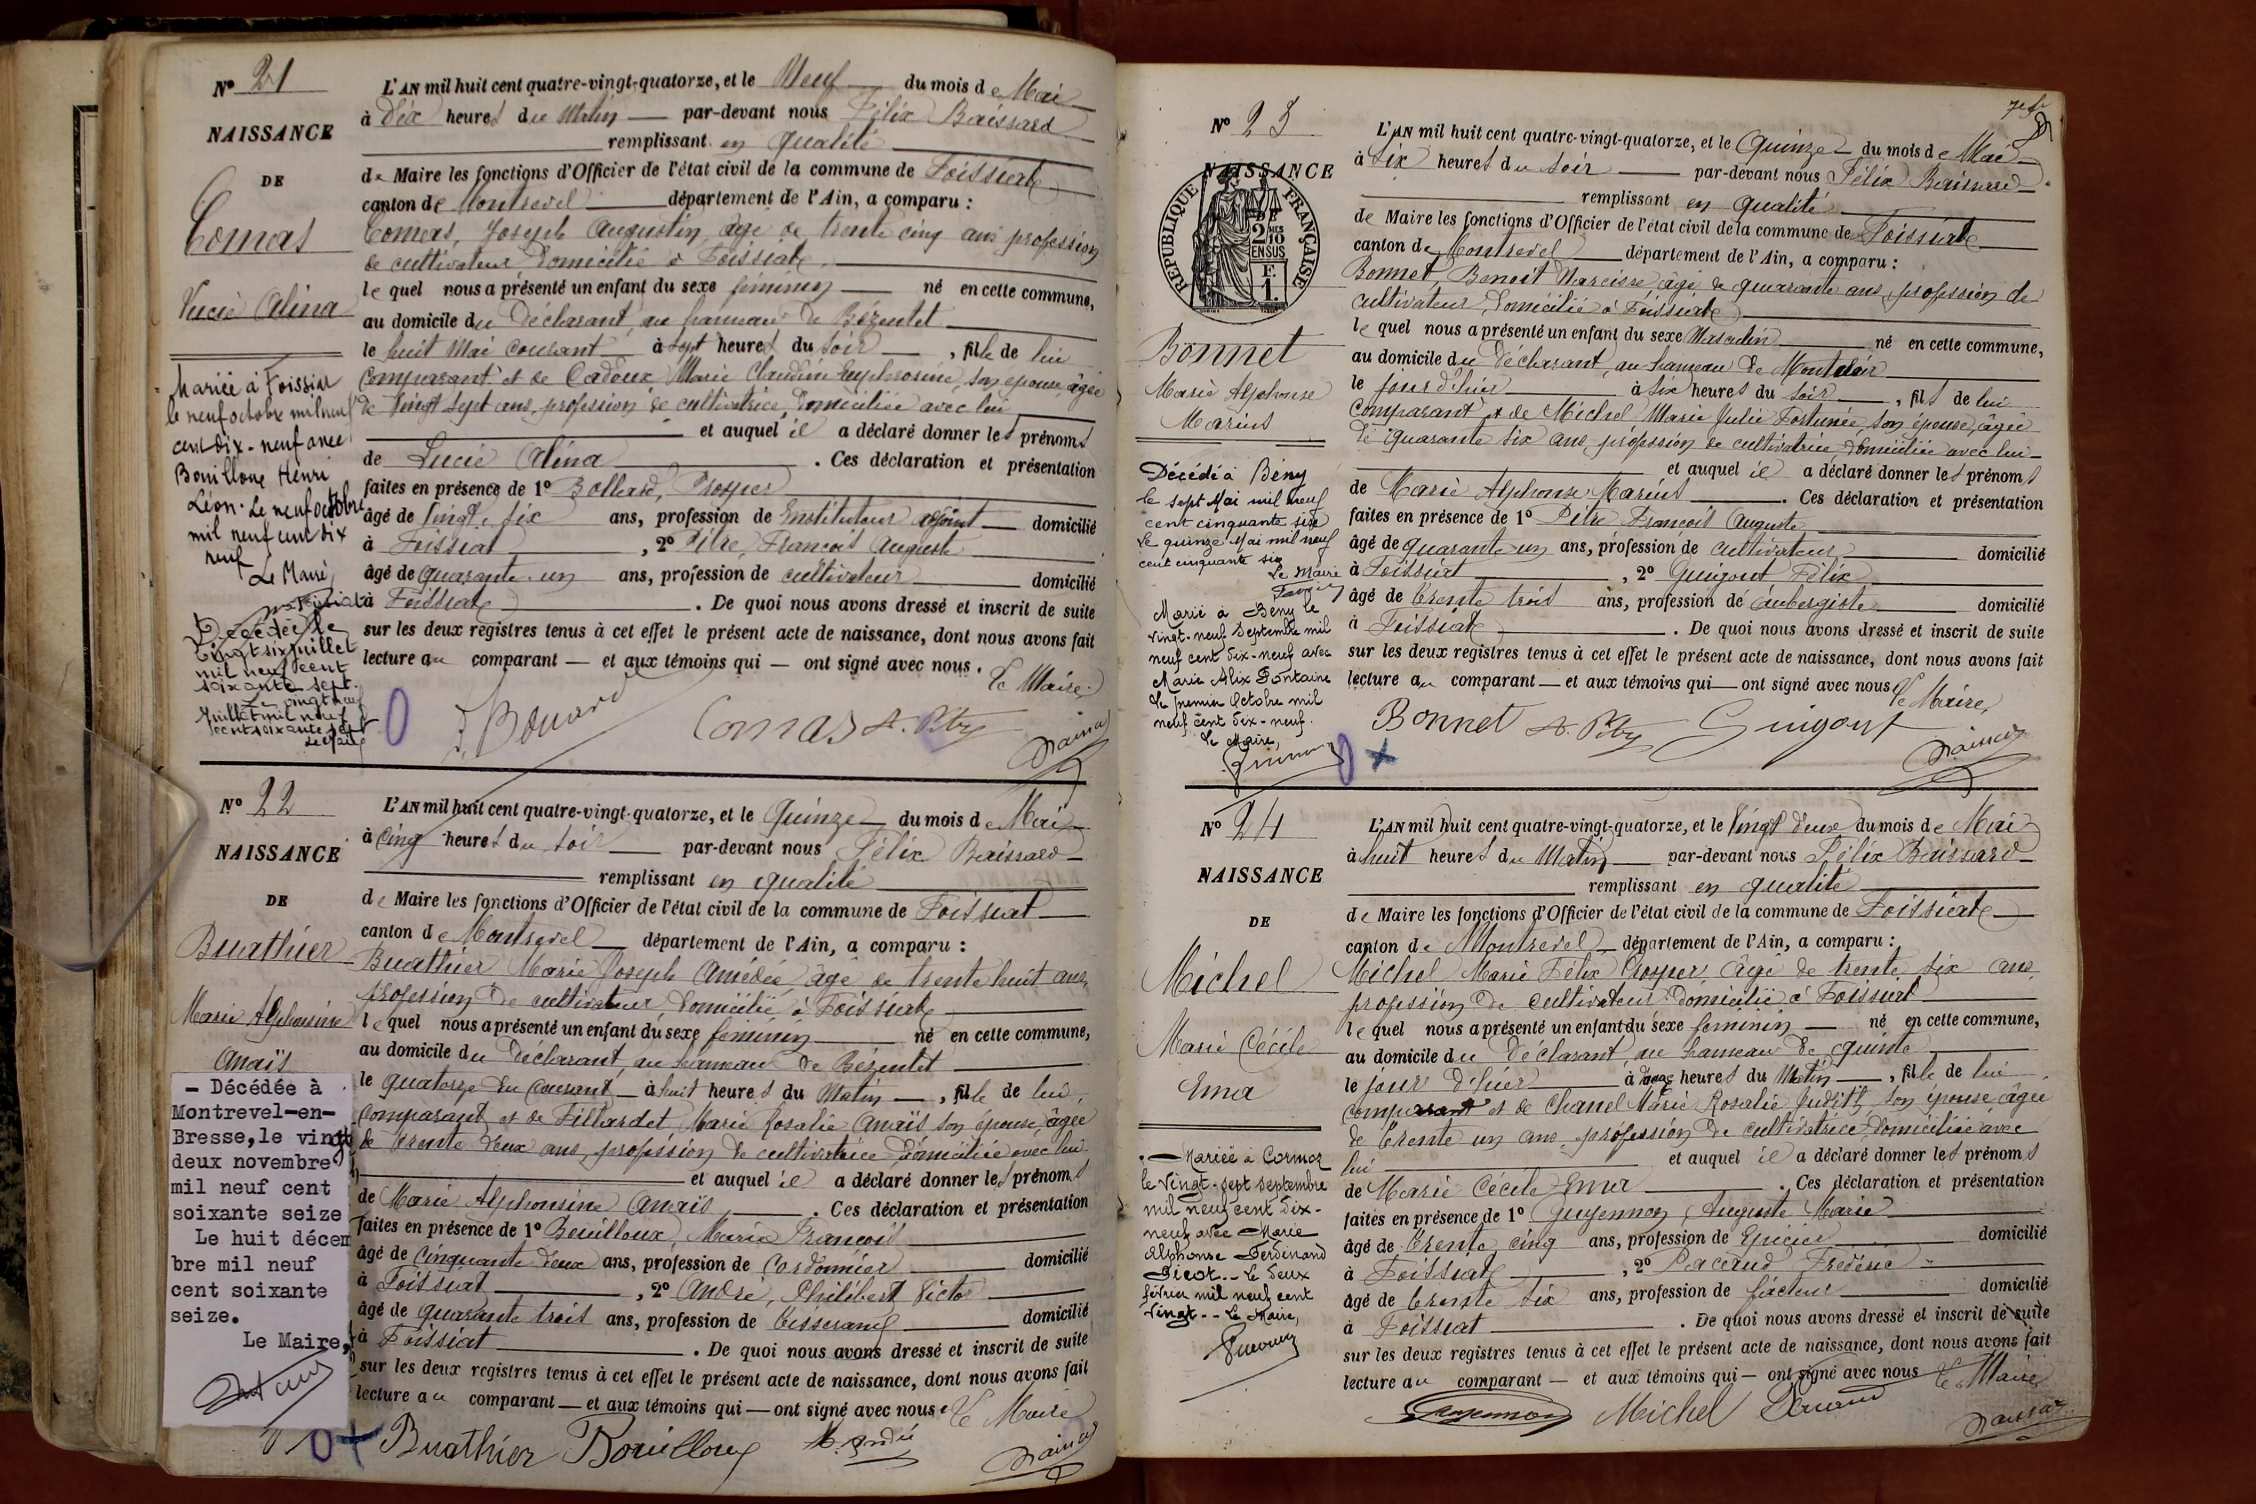 N° 21
NAISSANCE
DE
Comas
Lucie Alina
Mariée à Foissiat
le neuf octobre mil neuf
cent dix-neuf avec
Bouilloux Henri
Léon. Le neuf octobre
mil neuf cent dix
neuf
Le Maire,
Décédée le
vingt six juillet
mil neuf cent
soixante sept.
Le vingt neuf
Juillet mil neuf
cent soixante sept
Le Maire
L'AN mil huit cent quatre-vingt-quatorze, et le Neuf du mois de Mai
à Dix heures du Matin par-devant nous Félix Baissard
remplissant en qualité
de Maire les fonctions d'Officier de l'état civil de la commune de Foissiat
canton de Montrevel département de l'Ain, a comparu :
Comas, Joseph Augustin, âgé de trente cinq ans profession
de cultivateur domicilié à Foissiat
lequel nous a présenté un enfant du sexe féminin né en cette commune,
au domicile du Déclarant, au hameau de Bézentet
le huit Mai courant à sept heures du soir, fille de lui
comparant et de Cadoux Marie Claudine Euphrosine, son épouse, âgée
de Vingt sept ans, profession de cultivatrice, domiciliée avec lui
et auquel il a déclaré donner les prénoms
de Lucie Alina. Ces déclaration et présentation
faites en présence de 1° Prosper
âgé de Vingt six ans, profession de Instituteur adjoint domicilié
à Foissiat, 2° Pitre, François Auguste
âgé de quarante un ans, profession de cultivateur domicilié
à Foissiat. De quoi nous avons dressé et inscrit de suite
sur les deux registres tenus à cet effet le présent acte de naissance, dont nous avons fait
lecture au comparant — et aux témoins qui — ont signé avec nous.
Le Maire
Comas
N° 22
NAISSANCE
DE
Buathier
Marie Alphonsine
Anaïs
- Décédée à
Montrevel-en-
Bresse, le vingt
deux novembre
mil neuf cent
soixante seize
Le huit décem
bre mil neuf
cent soixante
seize.
Le Maire,
L'AN mil huit cent quatre-vingt-quatorze, et le Quinze du mois de Mai
à cinq heures du soir par-devant nous Félix Baissard
remplissant en qualité
de Maire les fonctions d'Officier de l'état civil de la commune de Foissiat
canton de Montrevel département de l'Ain, a comparu :
Buathier Marie Joseph Amédée, âgé de trente huit ans,
profession de cultivateur, domicilié à Foissiat
lequel nous a présenté un enfant du sexe féminin né en cette commune,
au domicile du Déclarant, au hameau de Bézentet
le quatorze du courant à huit heures du Matin, fille de lui,
comparant et de Fillardet Marie Rosalie Anaïs son épouse, âgée
de trente deux ans, profession de cultivatrice, domiciliée avec lui
et auquel il a déclaré donner les prénoms
de Marie Alphonsine Anaïs. Ces déclaration et présentation
faites en présence de 1° Bouilloux, Marie François
âgé de cinquante deux ans, profession de Cordonnier domicilié
à Foissiat, 2° André, Philibert Victor
âgé de quarante trois ans, profession de tisserand domicilié
à Foissiat. De quoi nous avons dressé et inscrit de suite
sur les deux registres tenus à cet effet le présent acte de naissance, dont nous avons fait
lecture au comparant — et aux témoins qui — ont signé avec nous. Le Maire
Buathier Bouilloux André
N° 23
NAISSANCE
DE
RÉPUBLIQUE FRANÇAISE
2 10MES
EN SUS
F.
1.
Bonnet
Marie Alphonse
Marius
Décédé à Bény
le sept Mai mil neuf
cent cinquante six
Le quinze Mai mil neuf
cent cinquante six
Le Maire
Marié à Bény le
vingt-neuf Septembre mil
neuf cent dix-neuf avec
Marie Alix Fontaine
Le premier Octobre mil
neuf cent dix-neuf.
Le Maire,
L'AN mil huit cent quatre-vingt-quatorze, et le Quinze du mois de Mai
à Six heures du soir par-devant nous Félix Baissard
remplissant en qualité
de Maire les fonctions d'Officier de l'état civil de la commune de Foissiat
canton de Montrevel département de l'Ain, a comparu :
Bonnet Benoît Narcisse âgé de quarante ans, profession de
cultivateur, domicilié à Foissiat
lequel nous a présenté un enfant du sexe Masculin né en cette commune,
au domicile du déclarant, au hameau de
le jour d'hier à six heures du soir, fils de lui
comparant et de Michel Marie Julie Fortunée, son épouse, âgée
de quarante six ans, profession de cultivatrice, domiciliée avec lui
et auquel il a déclaré donner les prénoms
de Marie Alphonse Marius. Ces déclaration et présentation
faites en présence de 1° Pitre François Auguste
âgé de quarante un ans, profession de cultivateur domicilié
à Foissiat, 2° Guigout Félix
âgé de trente trois ans, profession de aubergiste domicilié
à Foissiat. De quoi nous avons dressé et inscrit de suite
sur les deux registres tenus à cet effet le présent acte de naissance, dont nous avons fait
lecture au comparant — et aux témoins qui — ont signé avec nous. Le Maire,
Bonnet Guigout
N° 24
NAISSANCE
DE
Michel
Marie Cécile
Ema
Mariée à Cormoz
le vingt-sept septembre
mil neuf cent dix-
neuf avec Marie
Alphonse Ferdinand
Picot. - Le deux
février mil neuf cent
vingt. - Le Maire,
L'AN mil huit cent quatre-vingt-quatorze, et le Vingt deux du mois de Mai
à huit heures du Matin par-devant nous Félix Baissard
remplissant en qualité
de Maire les fonctions d'Officier de l'état civil de la commune de Foissiat
canton de Montrevel département de l'Ain, a comparu :
Michel Marie Félix Prosper, âgé de trente six ans,
profession de cultivateur domicilié à Foissiat
lequel nous a présenté un enfant du sexe féminin né en cette commune,
au domicile du déclarant, au hameau de quinte
le jour d'hier à heures du Matin, fille de lui
comparant et de Chanel Marie Rosalie Judith, son épouse, âgée
de trente un ans, profession de cultivatrice, domiciliée avec
lui et auquel il a déclaré donner les prénoms
de Marie Cécile Ema. Ces déclaration et présentation
faites en présence de 1° Guyennon, Auguste Marie
âgé de trente cinq ans, profession de Epicier domicilié
à Foissiat, 2° Pacaud Frédéric
âgé de trente six ans, profession de facteur domicilié
à Foissiat. De quoi nous avons dressé et inscrit de suite
sur les deux registres tenus à cet effet le présent acte de naissance, dont nous avons fait
lecture au comparant — et aux témoins qui — ont signé avec nous. Le Maire
Guyennon Michel